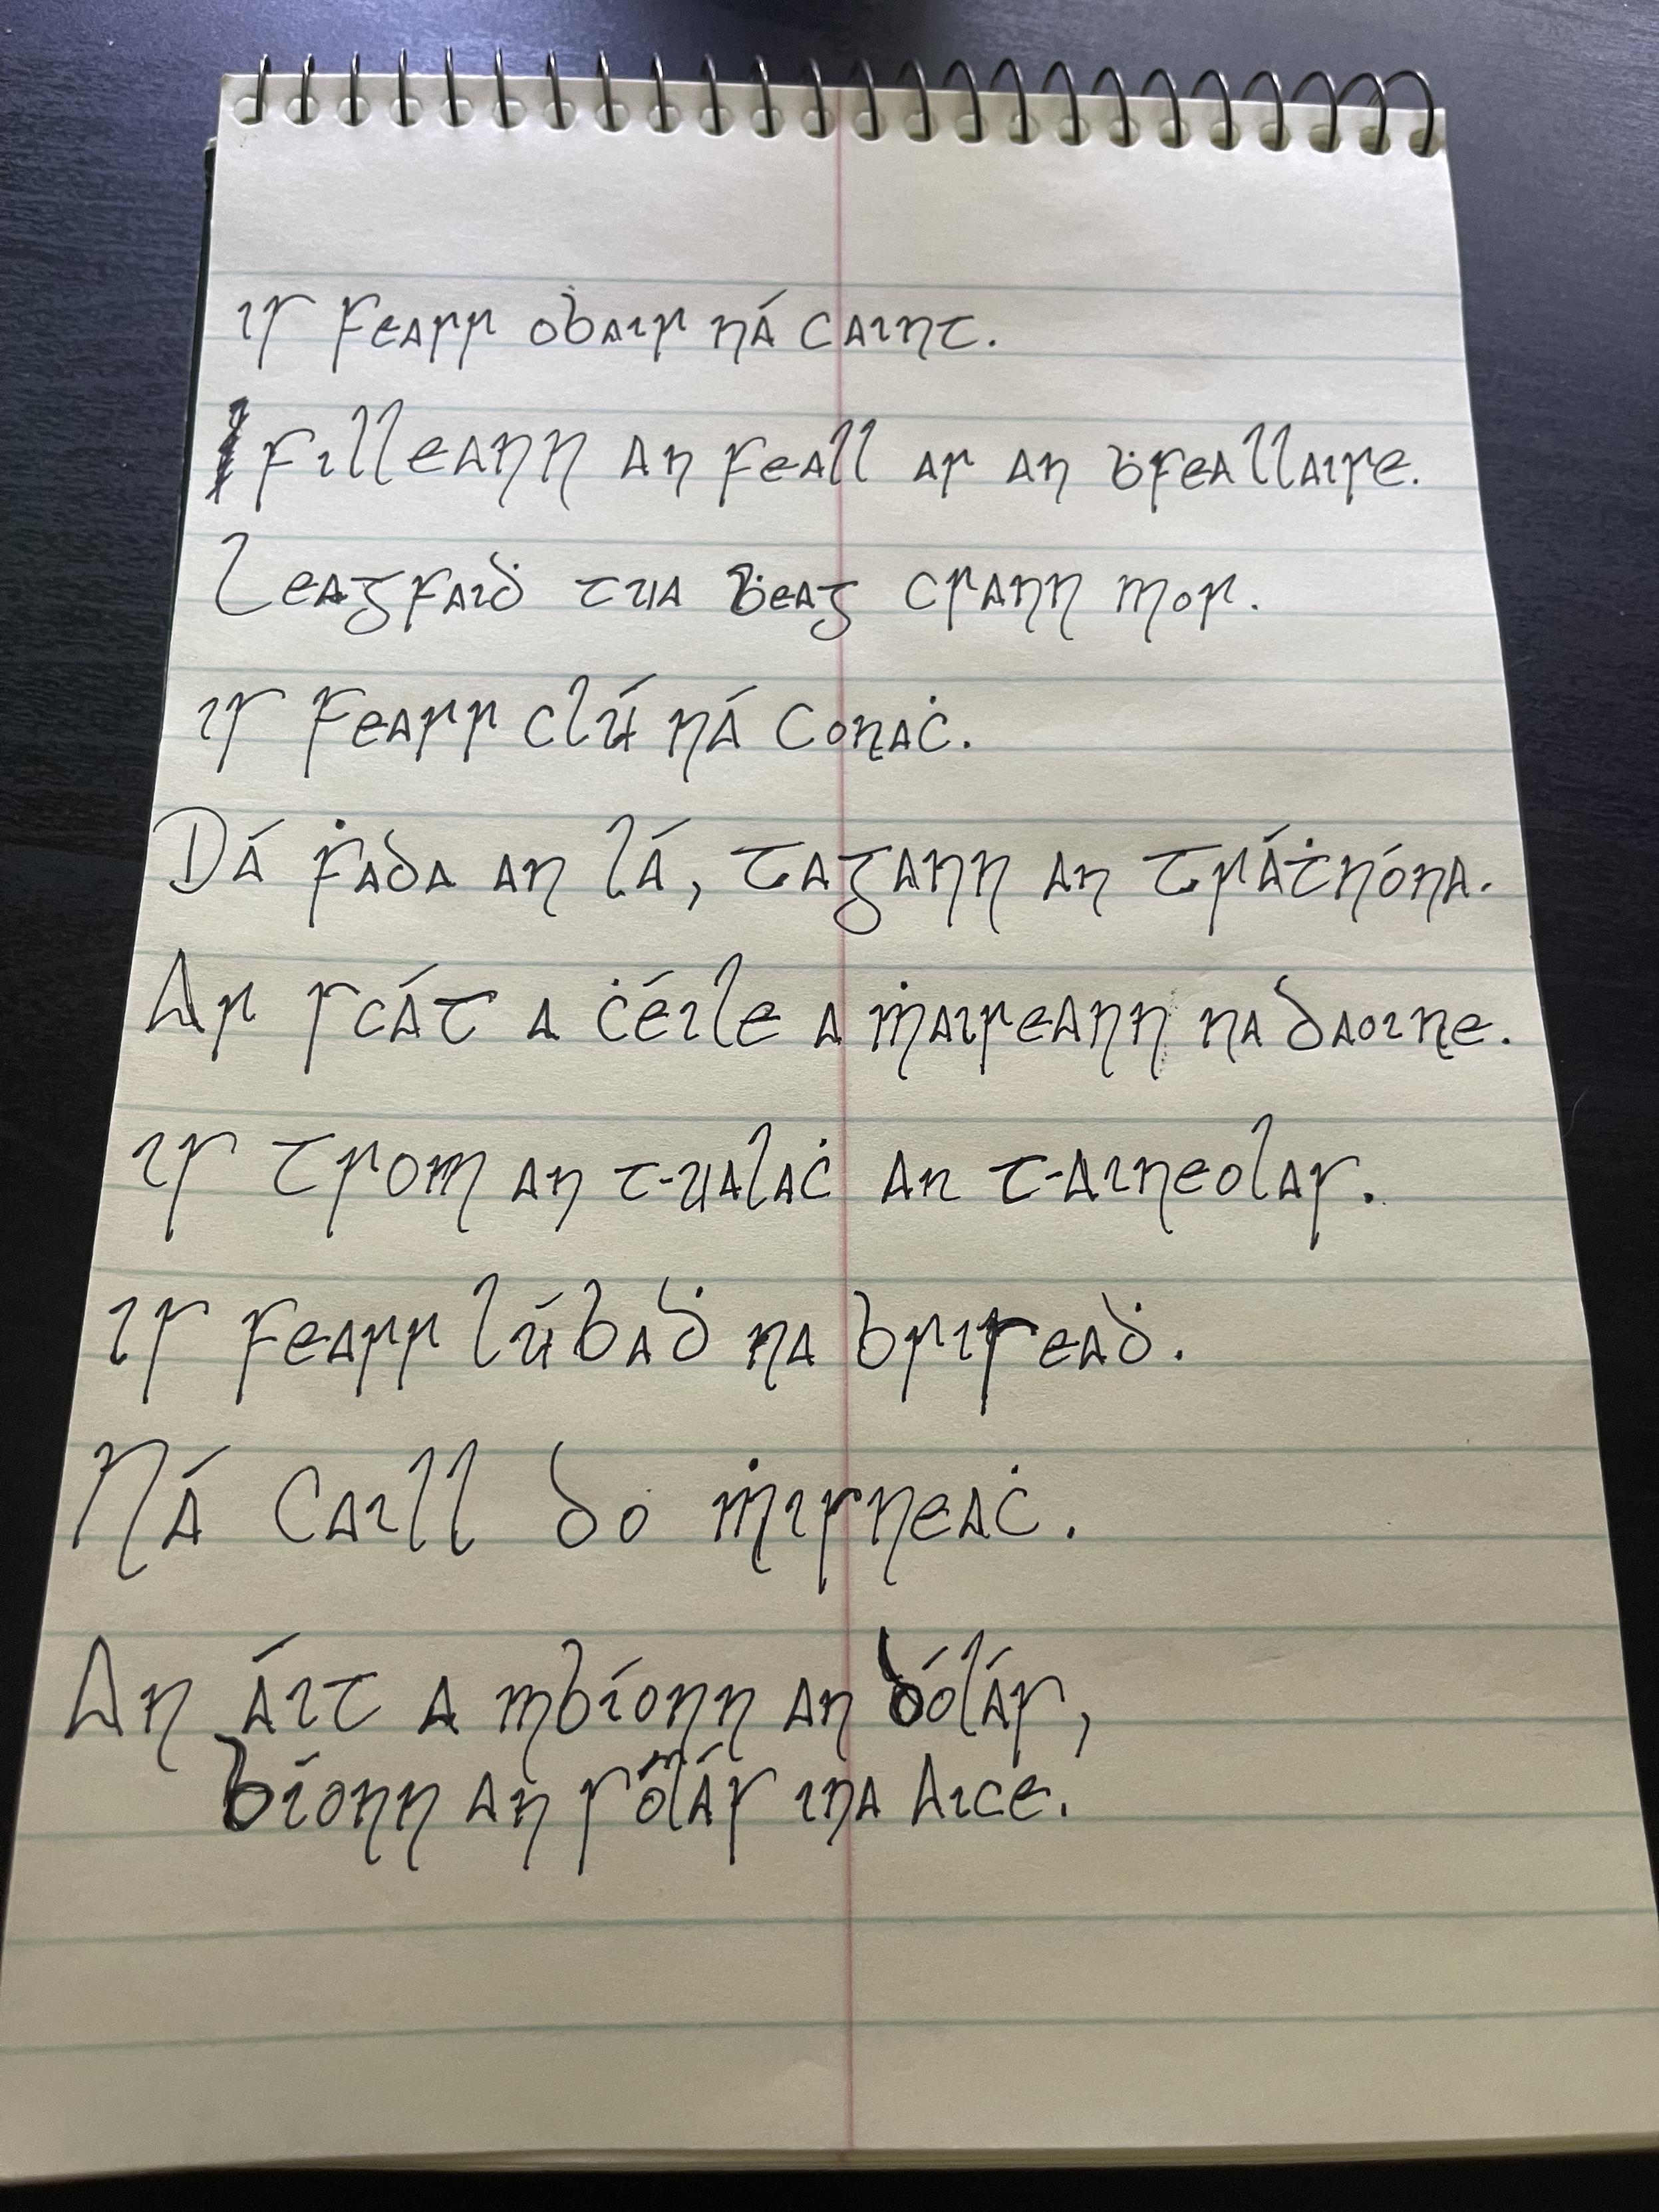 is fearr obair ná caint.
filleann an feall ar an ḃfeallaire.
leagfaiḋ tua ḃeag crann mor.
is fearr clú ná conaċ.
Dá ḟada an lá, tagann an tráṫnóna.
Ar scát a ċéile a ṁaireann na daoine.
is trom an t-ualaċ an t-aineolas.
is fearr lúbaḋ na briseaḋ.
Ná caill do ṁisneaċ.
An áit a mbíonn an dólás,
bíonn an sólás ina aice.